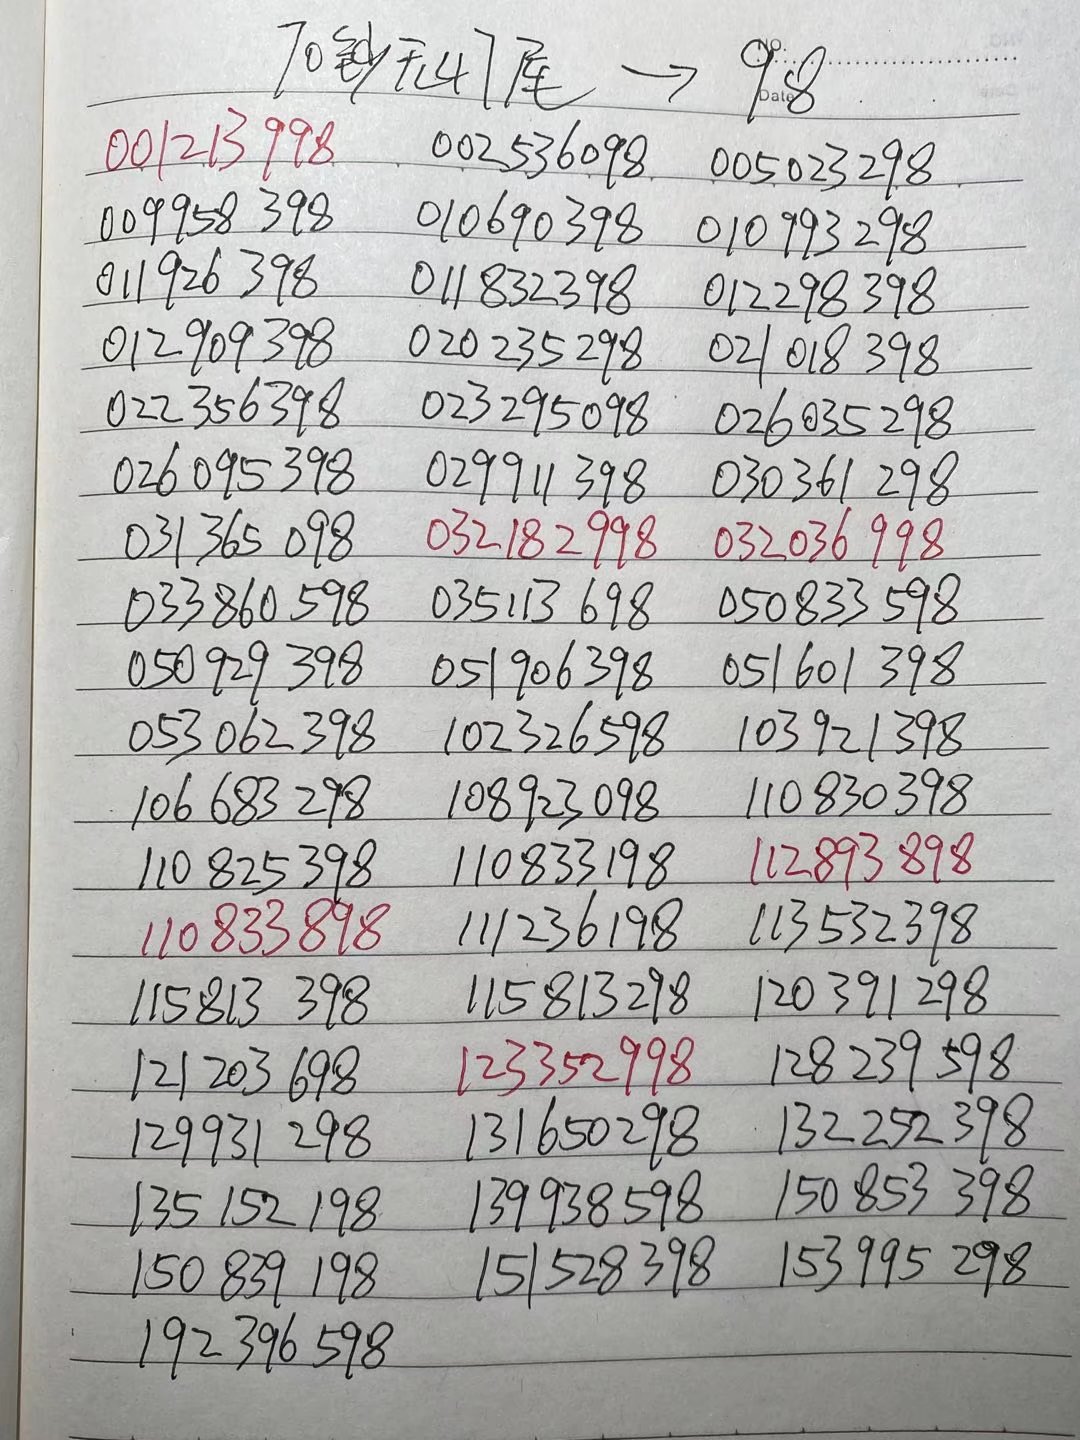 70钞无47尾 → 98
NO.
Date
001213998 002536098 005023298
009958398 010690398 010993298
011926398 011832398 012298398
012909398 020235298 021018398
022356398 023295098 026035298
026095398 029911398 030361298
031365098 032182998 032036998
033860598 035113698 050833598
050929398 051906398 051601398
053062398 102326598 103921398
106683298 108923098 110830398
110825398 110833198 112893898
110833898 111236198 113532398
115813398 115813298 120391298
121203698 123352998 128239598
129931298 131650298 132252398
135152198 139938598 150853398
150839198 151528398 153995298
192396598